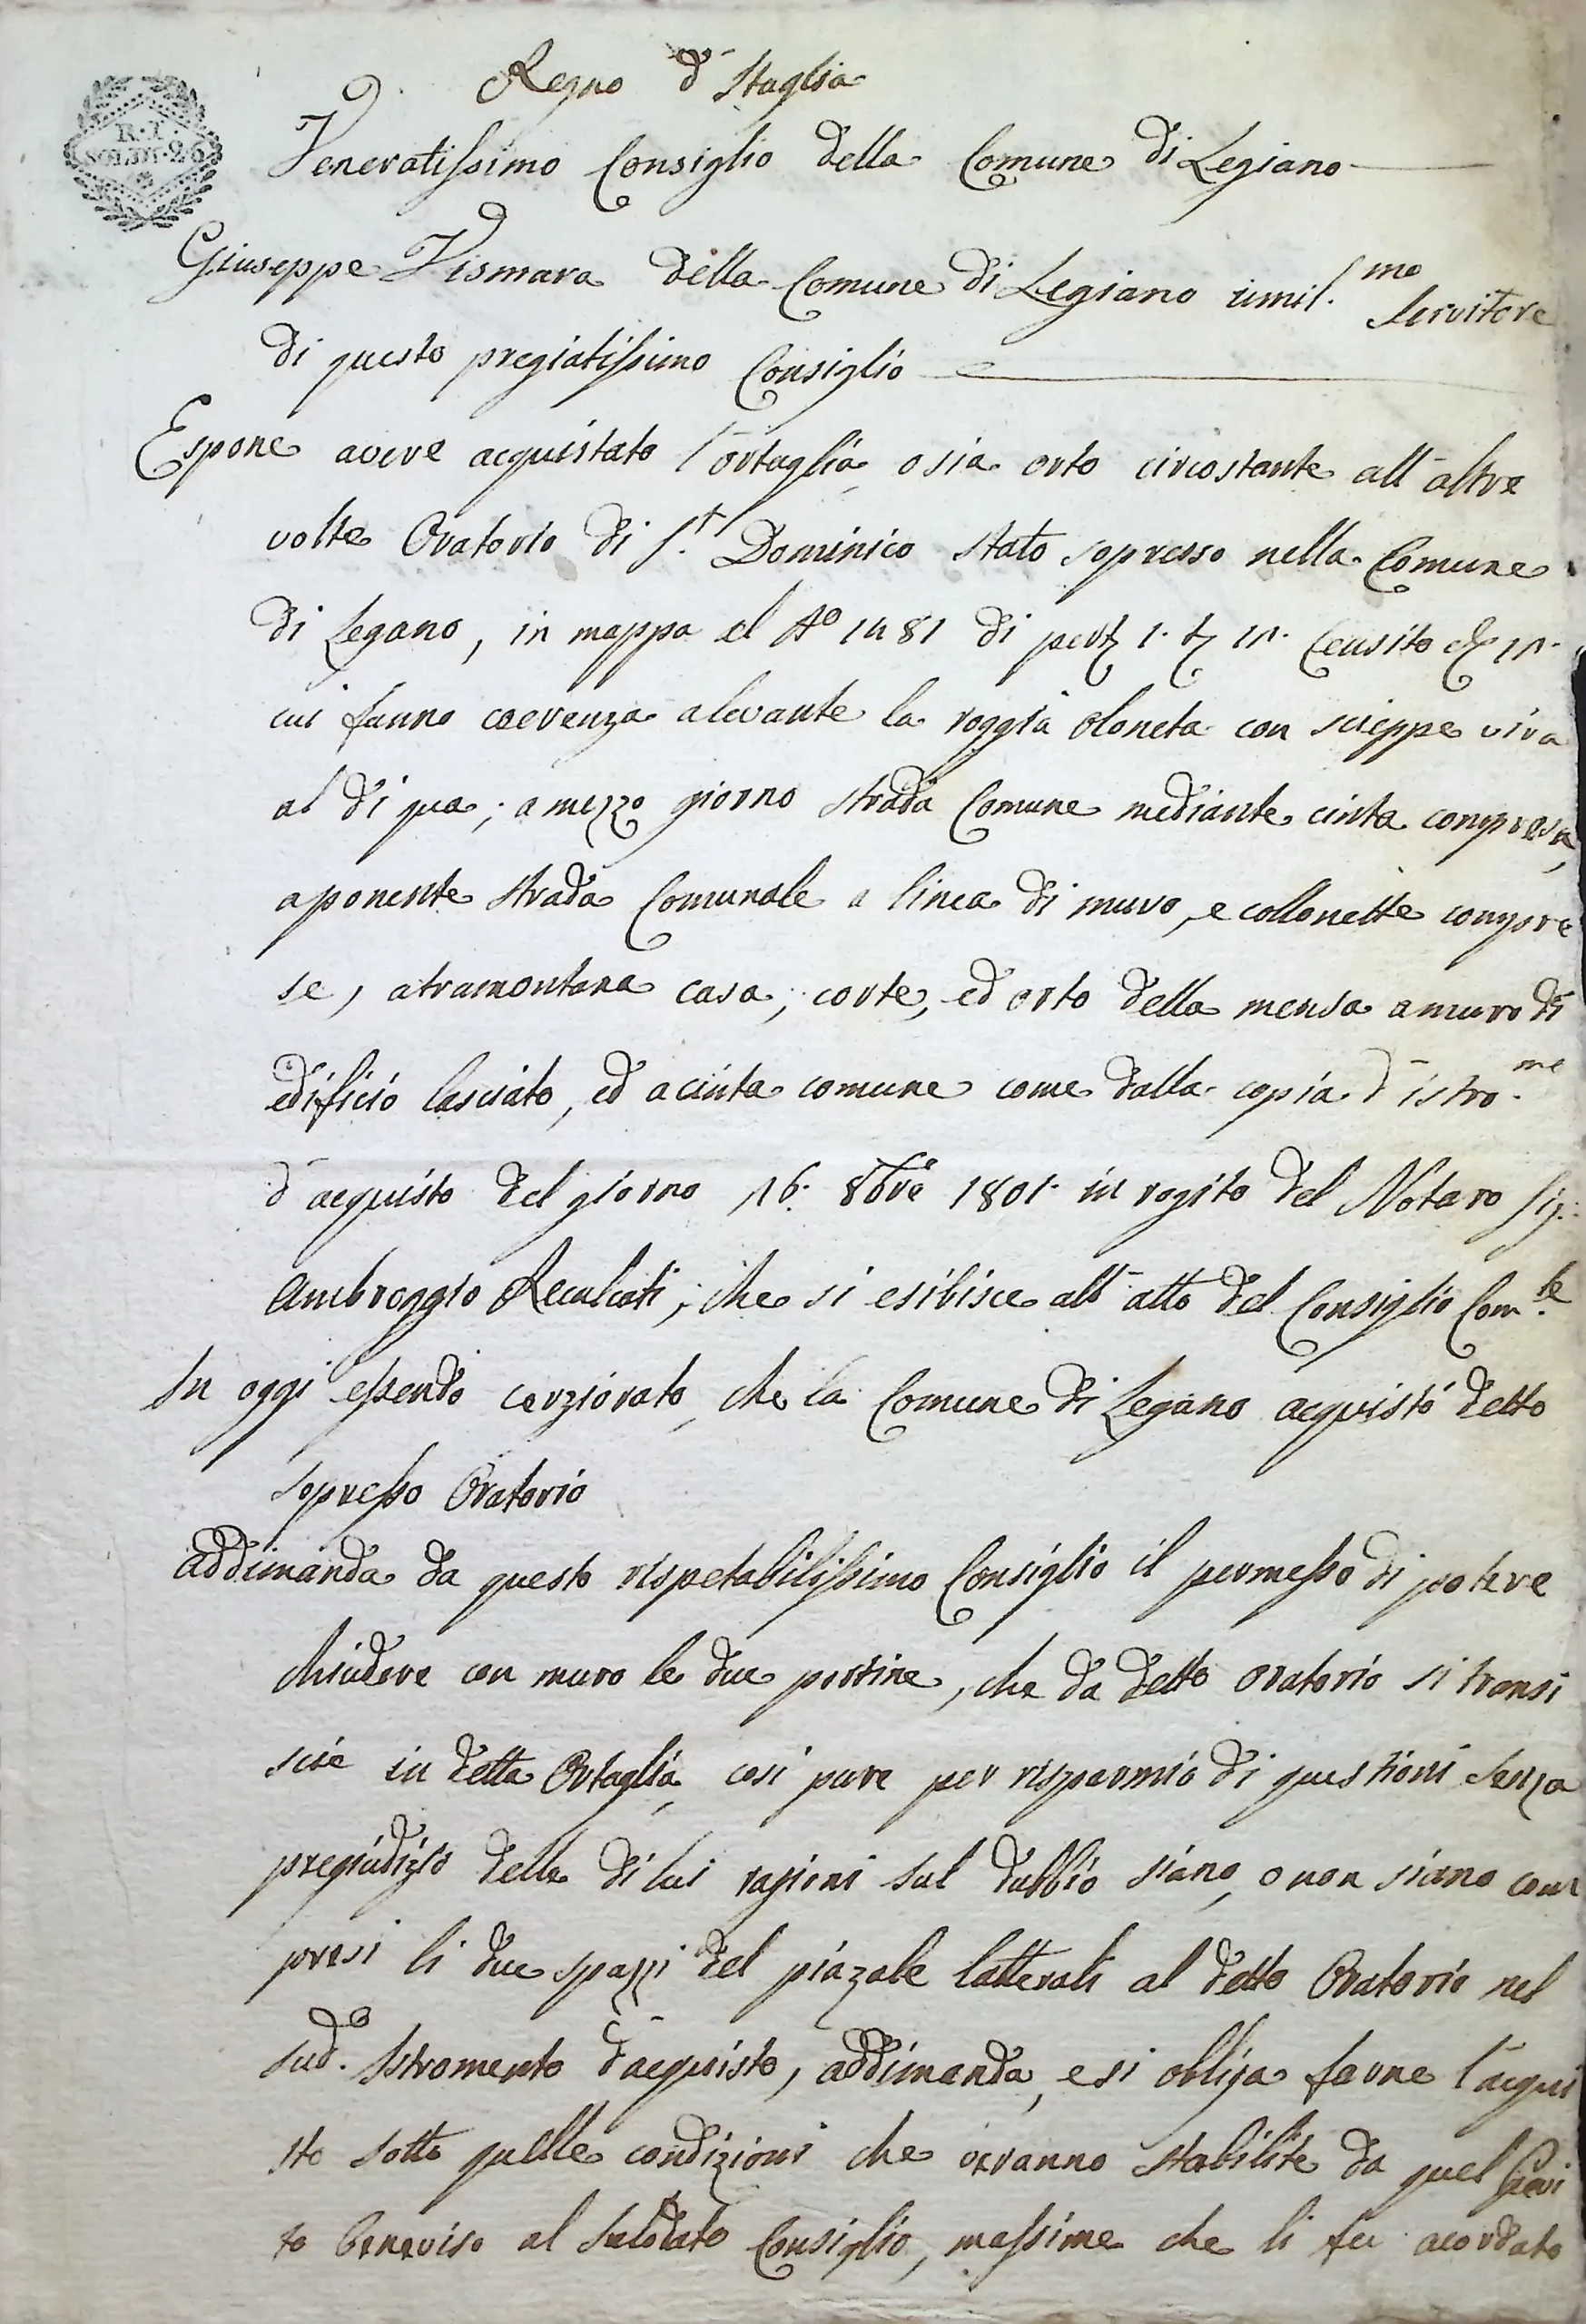 Regno d'Itaglia
R. I.
SOLDI 26
Veneratissimo Consiglio della Comune di Legiano
Giuseppe Vismara della Comune di Legiano umil.mo Servitore
di questo pregiatissimo Consiglio
Espone avere acquistato l'ortaglia, o sia orto circostante all'altre
volte Oratorio di S.t Dominico stato sopresso nella Comune
di Legano, in mappa el N.o 1481 di pert. 1. Censito
cui fanno coerenza a levante la roggia Oloneta con scieppe viva
al di qua; a mezzo giorno strada Comune mediante cinta compresa,
a ponente strada Comunale a linea di muro, e collonette compre
se, a tramontana casa, corte, ed orto della mensa a muro di
edificio lasciato, ed a cinta comune come dalla copia d'istro.me
d'acquisto del giorno 16. 8bre 1801. in rogito del Notaro Sig.:
Ambroggio Recalcati, che si esibisce all'atto del Consiglio Com.le
In oggi essendo cerziorato, che la Comune di Legano acquistò detto
sopresso Oratorio
Addimanda da questo rispetabilissimo Consiglio il permesso di potere
chiudere con muro le due portine, che da detto oratorio si transi
scie in detta Ortaglia, cosi pure per risparmio di questioni senza
pregiudizio delle di lui ragioni sul dubbio siano, o non siano com
presi li due spazzi del piazale latterali al detto Oratorio nel
sud.o Istromento d'acquisto, addimanda, e si obliga farne l'acqui
sto sotto quelle condizioni che veranno stabilite da quel
to beneviso al Salodato Consiglio, massime che li fu acordato